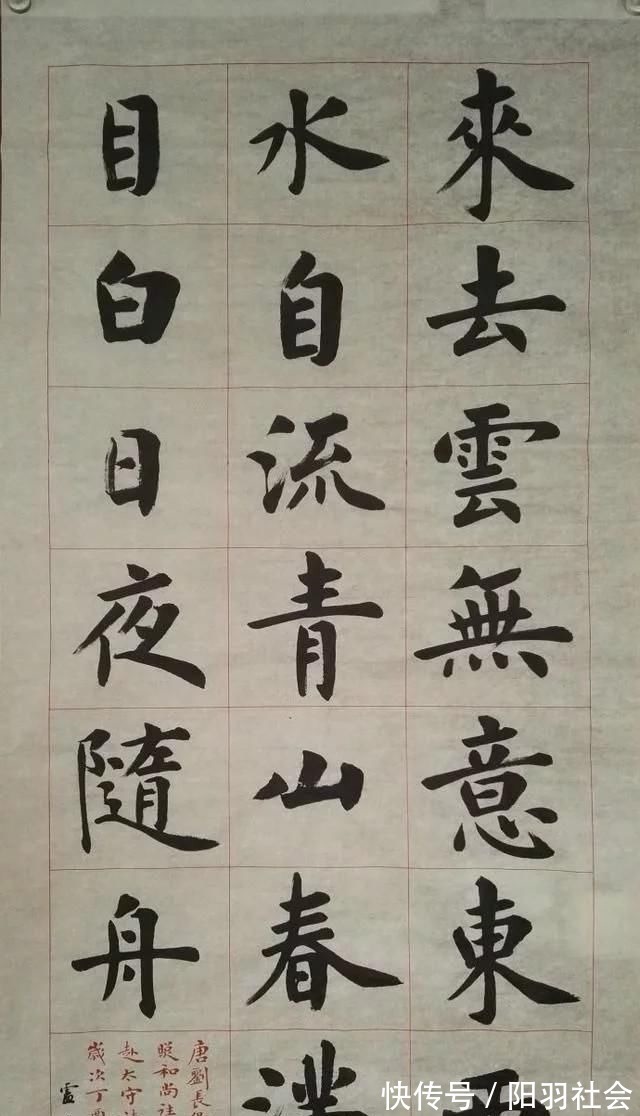 來去雲無意東
水自流青山春
目白日夜隨舟
唐劉長
和尚
赴太守
歲次丁酉
快传号／阳羽社会